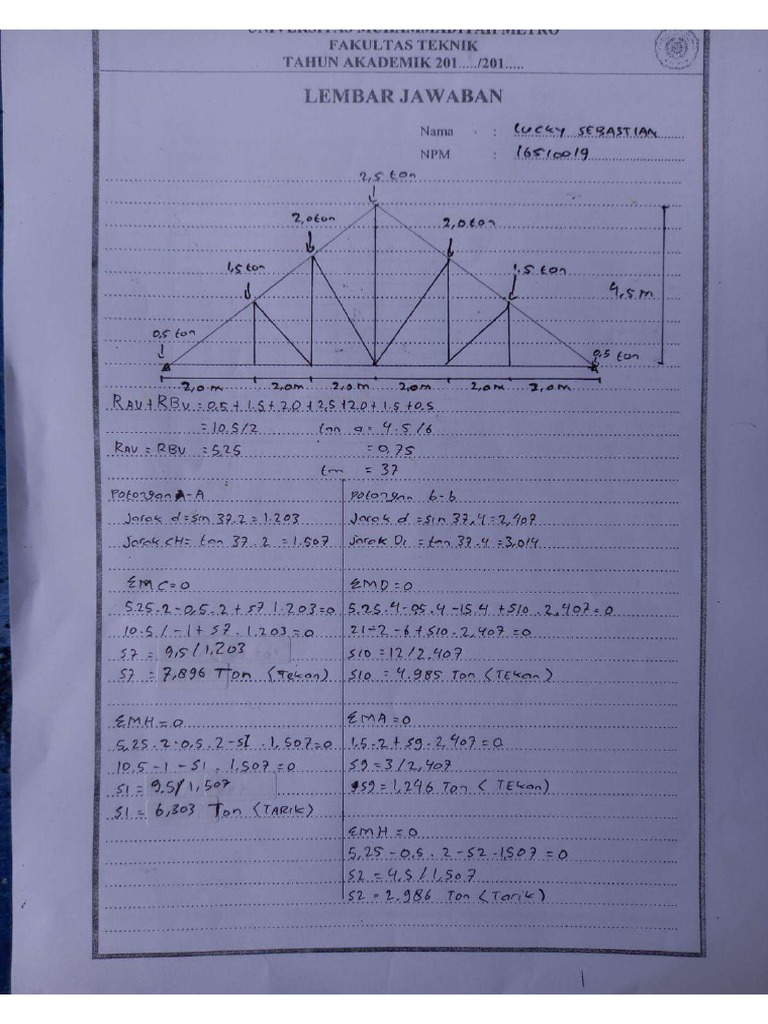 UNIVERSITAS MUHAMMADIYAH METRO
FAKULTAS TEKNIK
TAHUN AKADEMIK 201...../201.....
LEMBAR JAWABAN
Nama : LUCKY SEBASTIAN
NPM : 16510019
2,5 ton
2,0 ton
2,0 ton
1,5 ton
1,5 ton
4,5 m
0,5 ton
0,5 ton
2,0 m 2,0 m 2,0 m 2,0 m 2,0 m 2,0 m
RAV + RBV = 0.5 + 1.5 + 2.0 + 2,5 + 2.0 + 1.5 + 0.5
= 10.5/2 tan a = 4.5/6
RAV = RBV = 5.25 = 0.75
tan = 37
Potongan A-A
Jarak d = sin 37.2 = 1.203
Jarak CH = tan 37.2 = 1.507
ΣMC = 0
5.25.2 - 0,5.2 + S7 1.203 = 0
10.5/ - 1 + S7 . 1.203 = 0
S7 = 9,5/1,203
S7 = 7,896 Ton (Tekan)
ΣMH = 0
5,25.2 - 0,5.2 - S1 . 1,507 = 0
10.5 - 1 - S1 . 1.507 = 0
S1 = 9.5/1,507
S1 = 6,303 Ton (TARIK)
Potongan b-b
Jarak d = sin 37.4 = 2,407
Jarak D1 = tan 37.4 = 3,014
ΣMD = 0
5.25.4 - 0.5.4 - 1.5.4 + S10 . 2,407 = 0
21 - 2 - 6 + S10 . 2,407 = 0
S10 = 12/2,407
S10 = 4.985 Ton (TEKAN)
ΣMA = 0
1.5.2 + S9 . 2,407 = 0
S9 = 3/2,407
S9 = 1,246 Ton (TEKAN)
ΣMH = 0
5,25 - 0.5 . 2 - S2 - 1,507 = 0
S2 = 4,5/1,507
S2 = 2.986 Ton (Tarik)
1